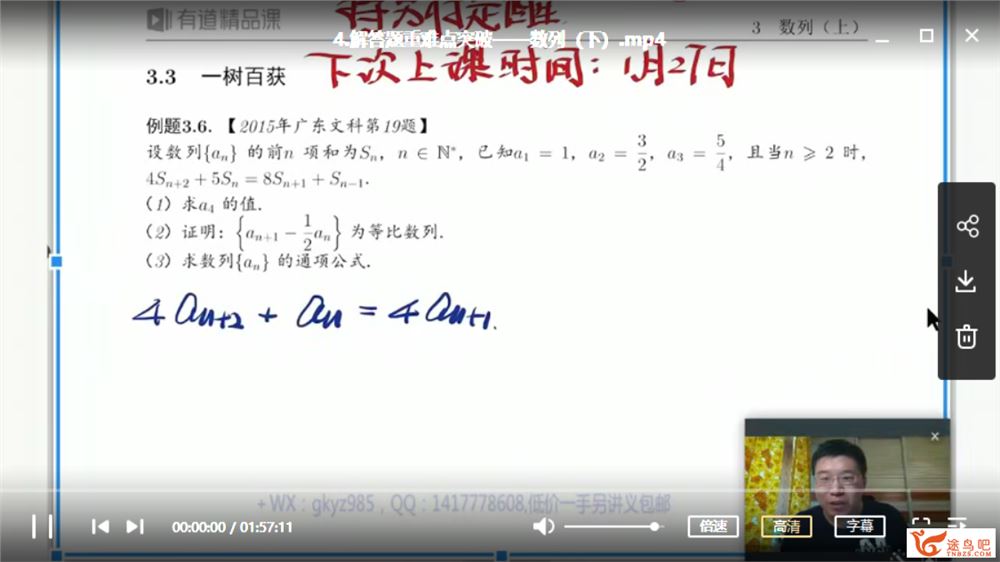 有道精品课
3 数列（上）
持为特定
4.解答题重难点突破——数列（下）.mp4
3.3 一树百获
下次上课时间：1月27日
例题3.6. 【2015年广东文科第19题】
设数列{aₙ} 的前n 项和为Sₙ，n ∈ ℕ*，已知a₁ = 1，a₂ = 3/2，a₃ = 5/4，且当n ⩾ 2 时，
4Sₙ₊₂ + 5Sₙ = 8Sₙ₊₁ + Sₙ₋₁.
(1) 求a₄ 的值.
(2) 证明：{aₙ₊₁ − 1/2 aₙ} 为等比数列.
(3) 求数列{aₙ} 的通项公式.
4aₙ₊₂ + aₙ = 4aₙ₊₁.
+WX：gkyz985，QQ：1417778608,低价一手另讲义包邮
00:00:00 / 01:57:11
倍速
高清
字幕
途鸟吧
TNBZS.COM